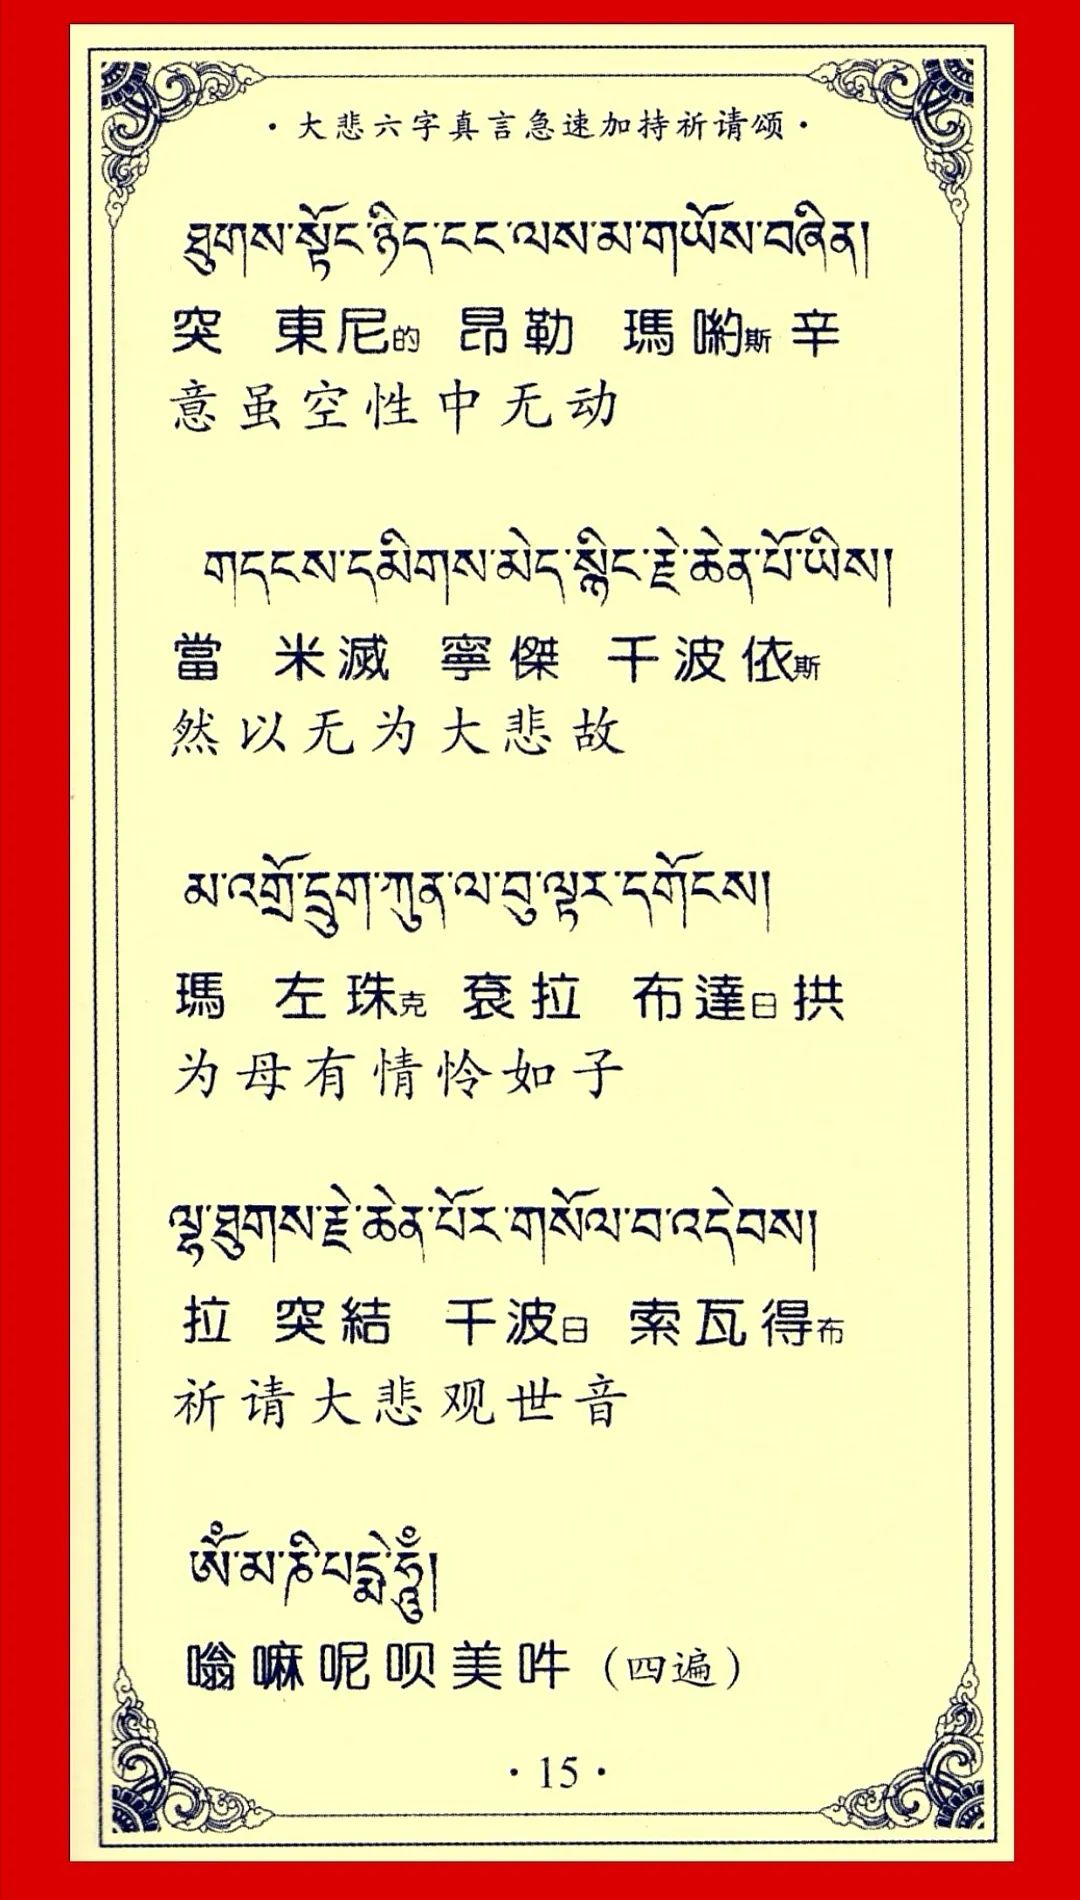 ·大悲六字真言急速加持祈请颂·
ཐུགས་སྟོང་ཉིད་ངང་ལས་མ་གཡོས་བཞིན།
突 東尼的 昂勒 瑪喲斯辛
意虽空性中无动
གདངས་དམིགས་མེད་སྙིང་རྗེ་ཆེན་པོ་ཡིས།
當 米滅 寧傑 千波依斯
然以无为大悲故
མ་འགྲོ་དྲུག་ཀུན་ལ་བུ་ལྟར་དགོངས།
瑪 左珠克 袞拉 布達日拱
为母有情怜如子
ལྷ་ཐུགས་རྗེ་ཆེན་པོར་གསོལ་བ་འདེབས།
拉 突結 千波日 索瓦得布
祈请大悲观世音
ཨོཾ་མ་ཎི་པདྨེ་ཧཱུྃ།
嗡嘛呢呗美吽（四遍）
·15·